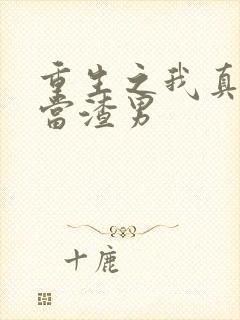 重生之我真
当渣男
十鹿